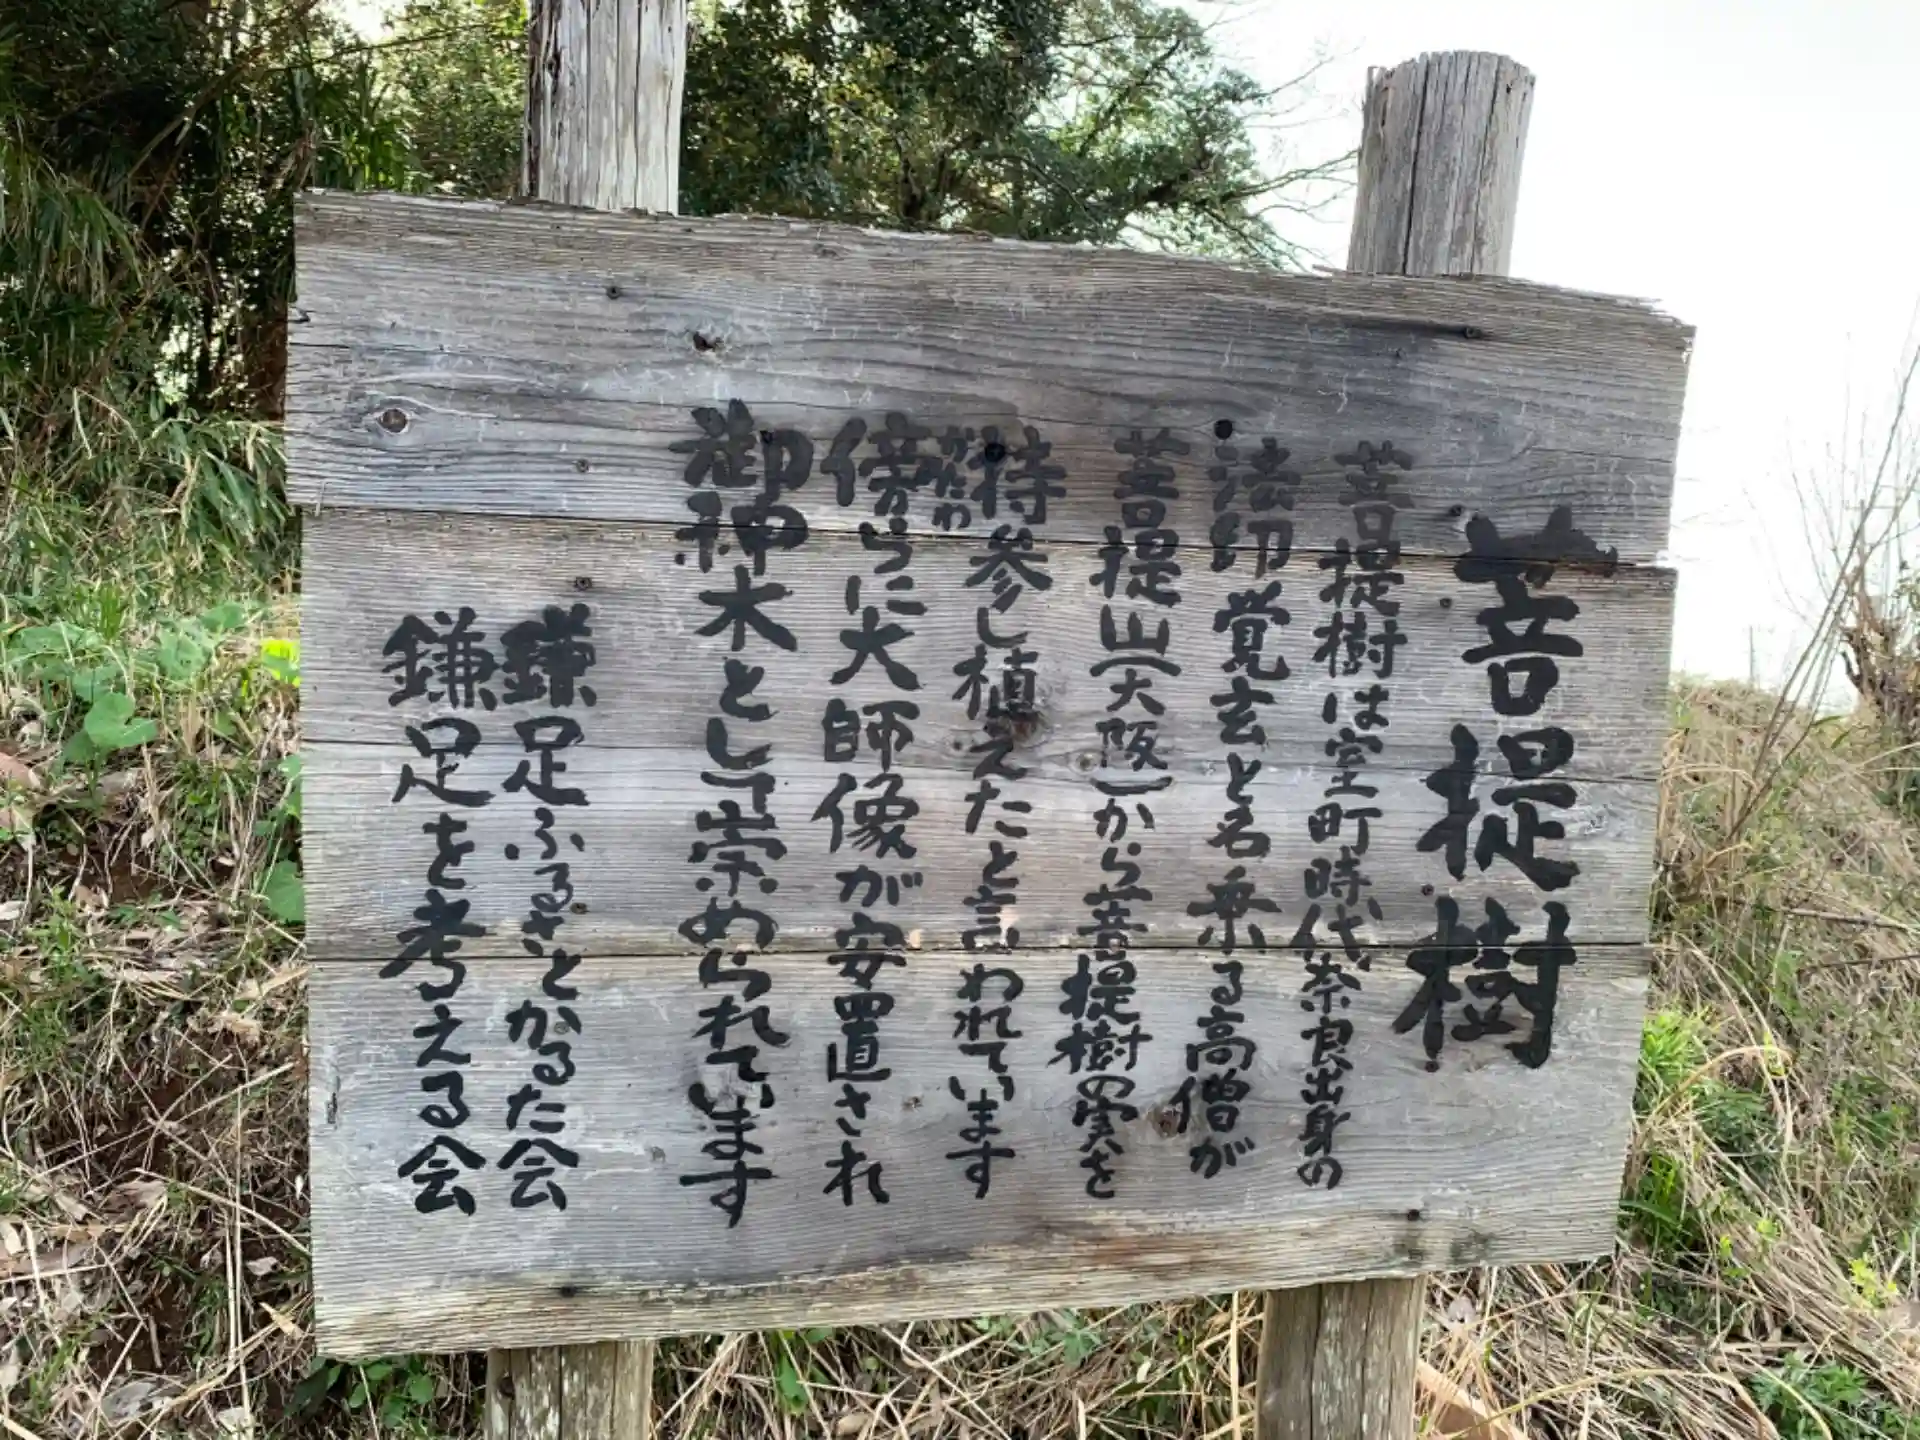 菩提樹
菩提樹は室町時代奈良出身の
法印覚玄と名乗る高僧が
菩提山(大阪)から菩提樹の実を
持参し植えたと言われています
傍らに大師像が安置され
かたわ
御神木として崇められています
鎌足ふるさとかるた会
鎌足を考える会